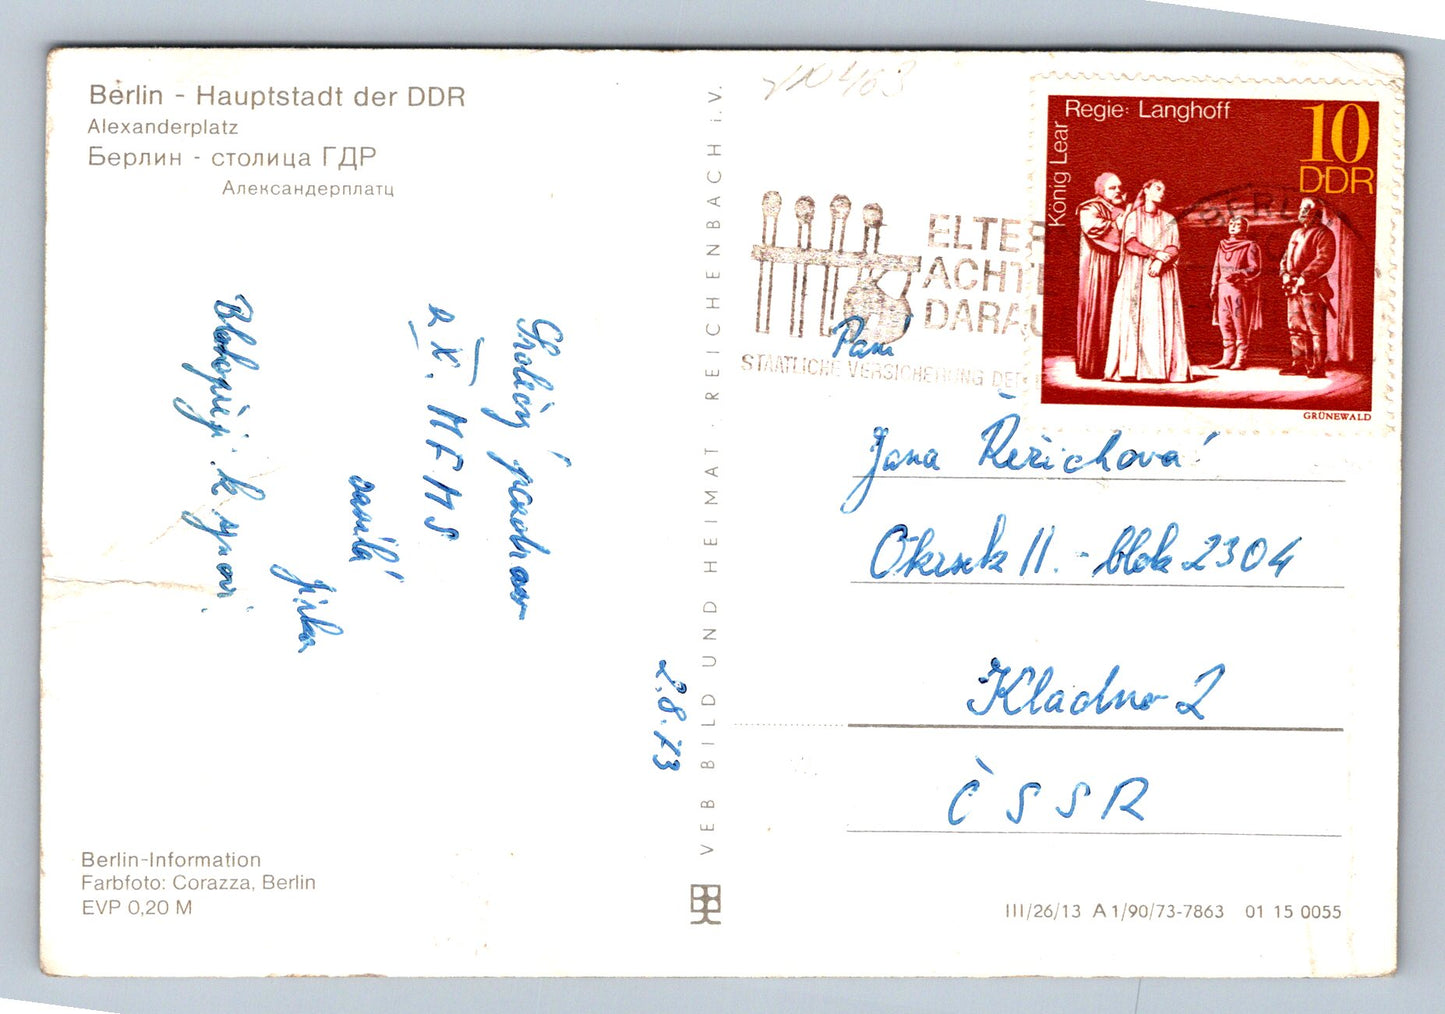 Berlin - Hauptstadt der DDR
Alexanderplatz
Берлин - столица ГДР
Александерплатц
Srdečný pozdrav
z X. MFMS
zasílá
Jirka
Blahopřeji k synovi
2.8.73
Berlin-Information
Farbfoto: Corazza, Berlin
EVP 0,20 M
VEB BILD UND HEIMAT · REICHENBACH i.V.
ELTER
ACHT
DARAU
STAATLICHE VERSICHERUNG DER
BERLIN
König Lear
Regie: Langhoff
10
DDR
GRÜNEWALD
Paní
Jana Řeřichová
Okrsek II. - blok 2304
Kladno 2
ČSSR
III/26/13 A 1/90/73-7863 01 15 0055